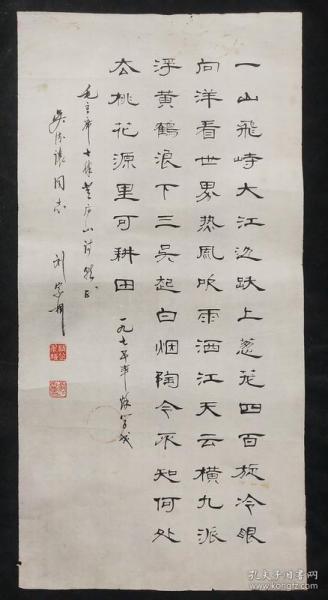 一山飞峙大江边跃上葱茏四百旋冷眼
向洋看世界热风吹雨洒江天云横九派
浮黄鹤浪下三吴起白烟陶令不知何处
去桃花源里可耕田 一九七
毛主席七律登庐山
同志 刘
孔夫子旧书网